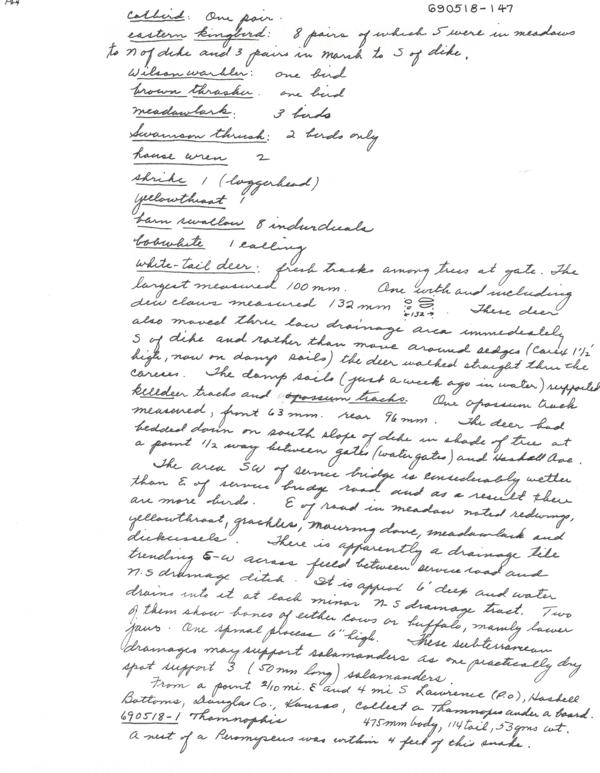 690518-147
catbird: One pair.
eastern kingbird: 8 pairs of which 5 were in meadows
to N of dike and 3 pairs in marsh to S of dike.
Wilson warbler: one bird
brown thrasher one bird
meadowlark: 3 birds
Swainson thrush: 2 birds only
house wren 2
shrike 1 (loggerhead)
yellowthroat 1
barn swallow 8 individuals
bobwhite 1 calling
white-tail deer: fresh tracks among trees at gate. The
largest measured 100 mm. One with and including
dew claws measured 132 mm ←132→ . These deer
also moved thru low drainage area immediately
S of dike and rather than move around sedges (Carex 1½'
high, now on damp soils) the deer walked straight thru the
carexes. The damp soils (just a week ago in water) supported
killdeer tracks and opossum tracks. One opossum track
measured, front 63 mm. rear 96 mm. The deer had
bedded down on south slope of dike in shade of tree at
a point ½ way between gates (watergates) and Haskell Ave.
The area SW of service bridge is considerably wetter
than E of service bridge road and as a result there
are more birds. E of road in meadow noted redwing,
yellowthroat, grackles, mourning dove, meadowlark and
dickcissels. There is apparently a drainage tile
trending E-W across field between service road and
N-S drainage ditch. It is approx 6' deep and water
drains into it at each minor N-S drainage tract. Two
of them show bones of either cows or buffalo, mainly lower
jaws. One spinal process 6" high. These subterranean
drainages may support salamanders as one practically dry
spot support 3 (50 mm long) salamanders.
From a point 2/10 mi. E and 4 mi S Lawrence (P.O), Haskell
Bottoms, Douglas Co., Kansas, collect a Thamnopis under a board.
690518-1 Thamnophis 475 mm body, 114 tail, 53 gms wt.
A nest of a Peromyscus was within 4 feet of this snake.